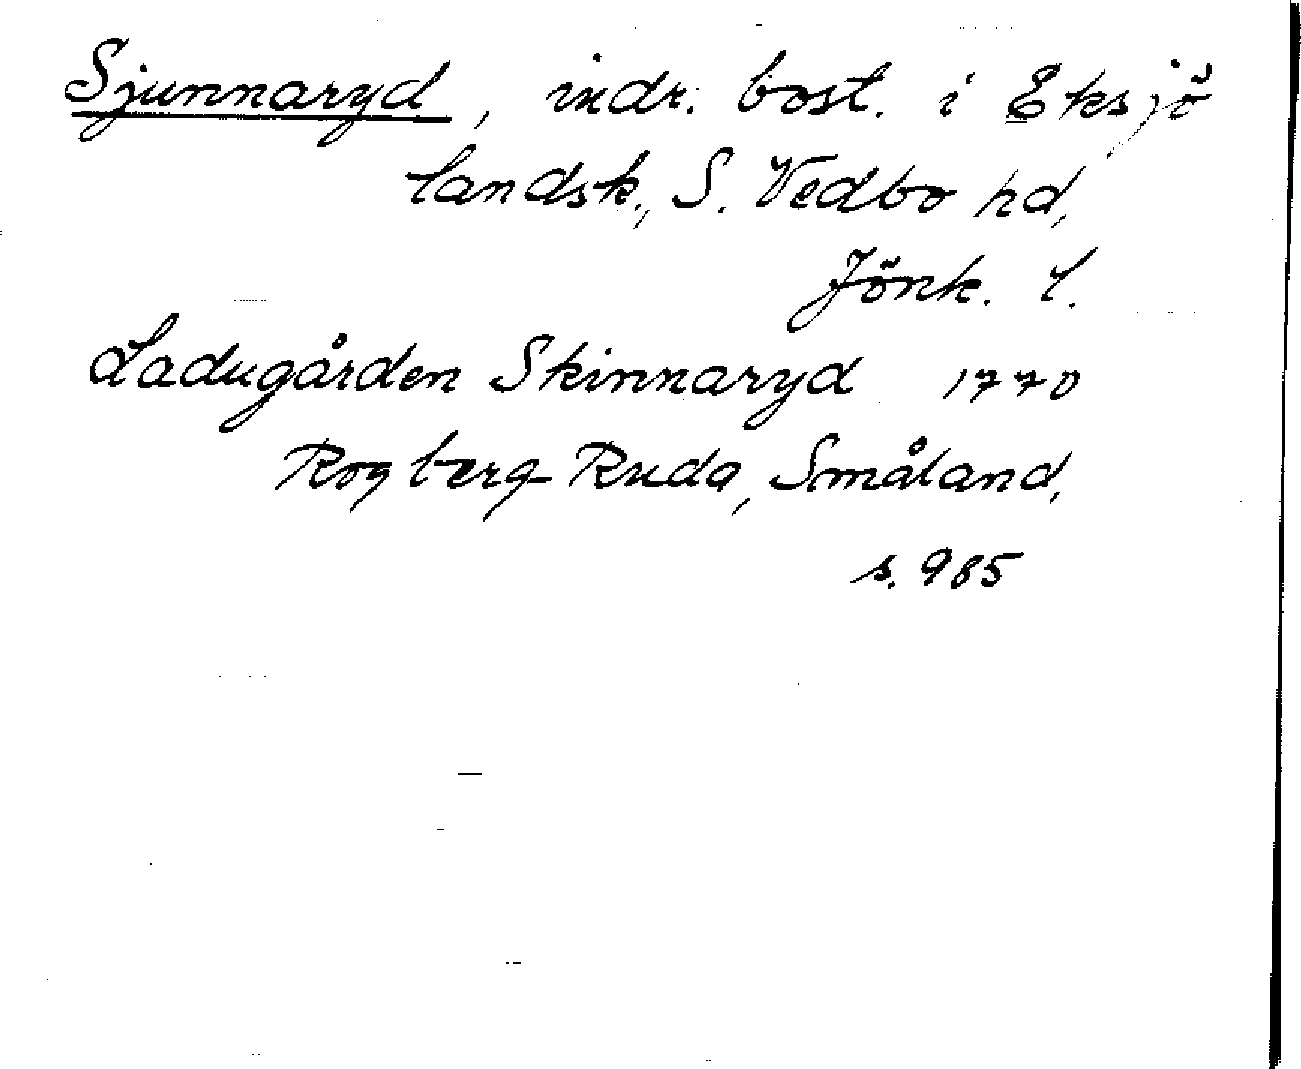 Sjunnaryd, indr. bost. i Eksjö
landsk., S. Vedbo hd,
Jönk. l.
Ladugården Skinnaryd 1770
Rogberg-Ruda, Småland,
s. 985